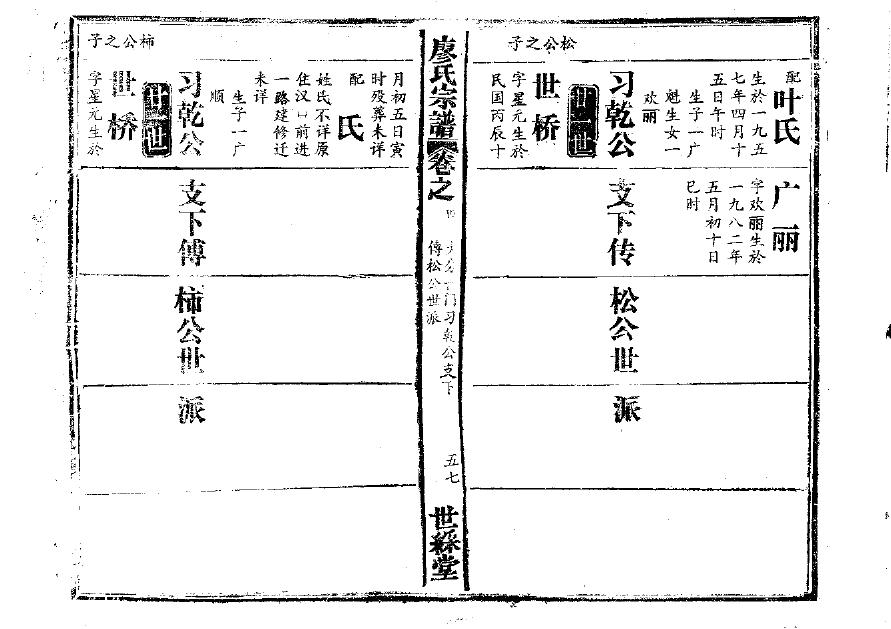 松公之子
配叶氏
生於一九五
七年四月十
五日午时
生子一广
魁生女一
欢丽
广丽
字欢丽生於
一九八二年
五月初十日
巳时
习乾公支下传松公世派
世桥
字星元生於
民国丙辰十
廖氏宗譜卷之
门习乾公支下
傳松公世派
五七
世綵堂
柿公之子
月初五日寅
时殁葬未详
配氏
姓氏不详原
住汉口前进
一路建修迁
未详
生子一广
顺
习乾公支下傳柿公世派
世桥
字星元生於